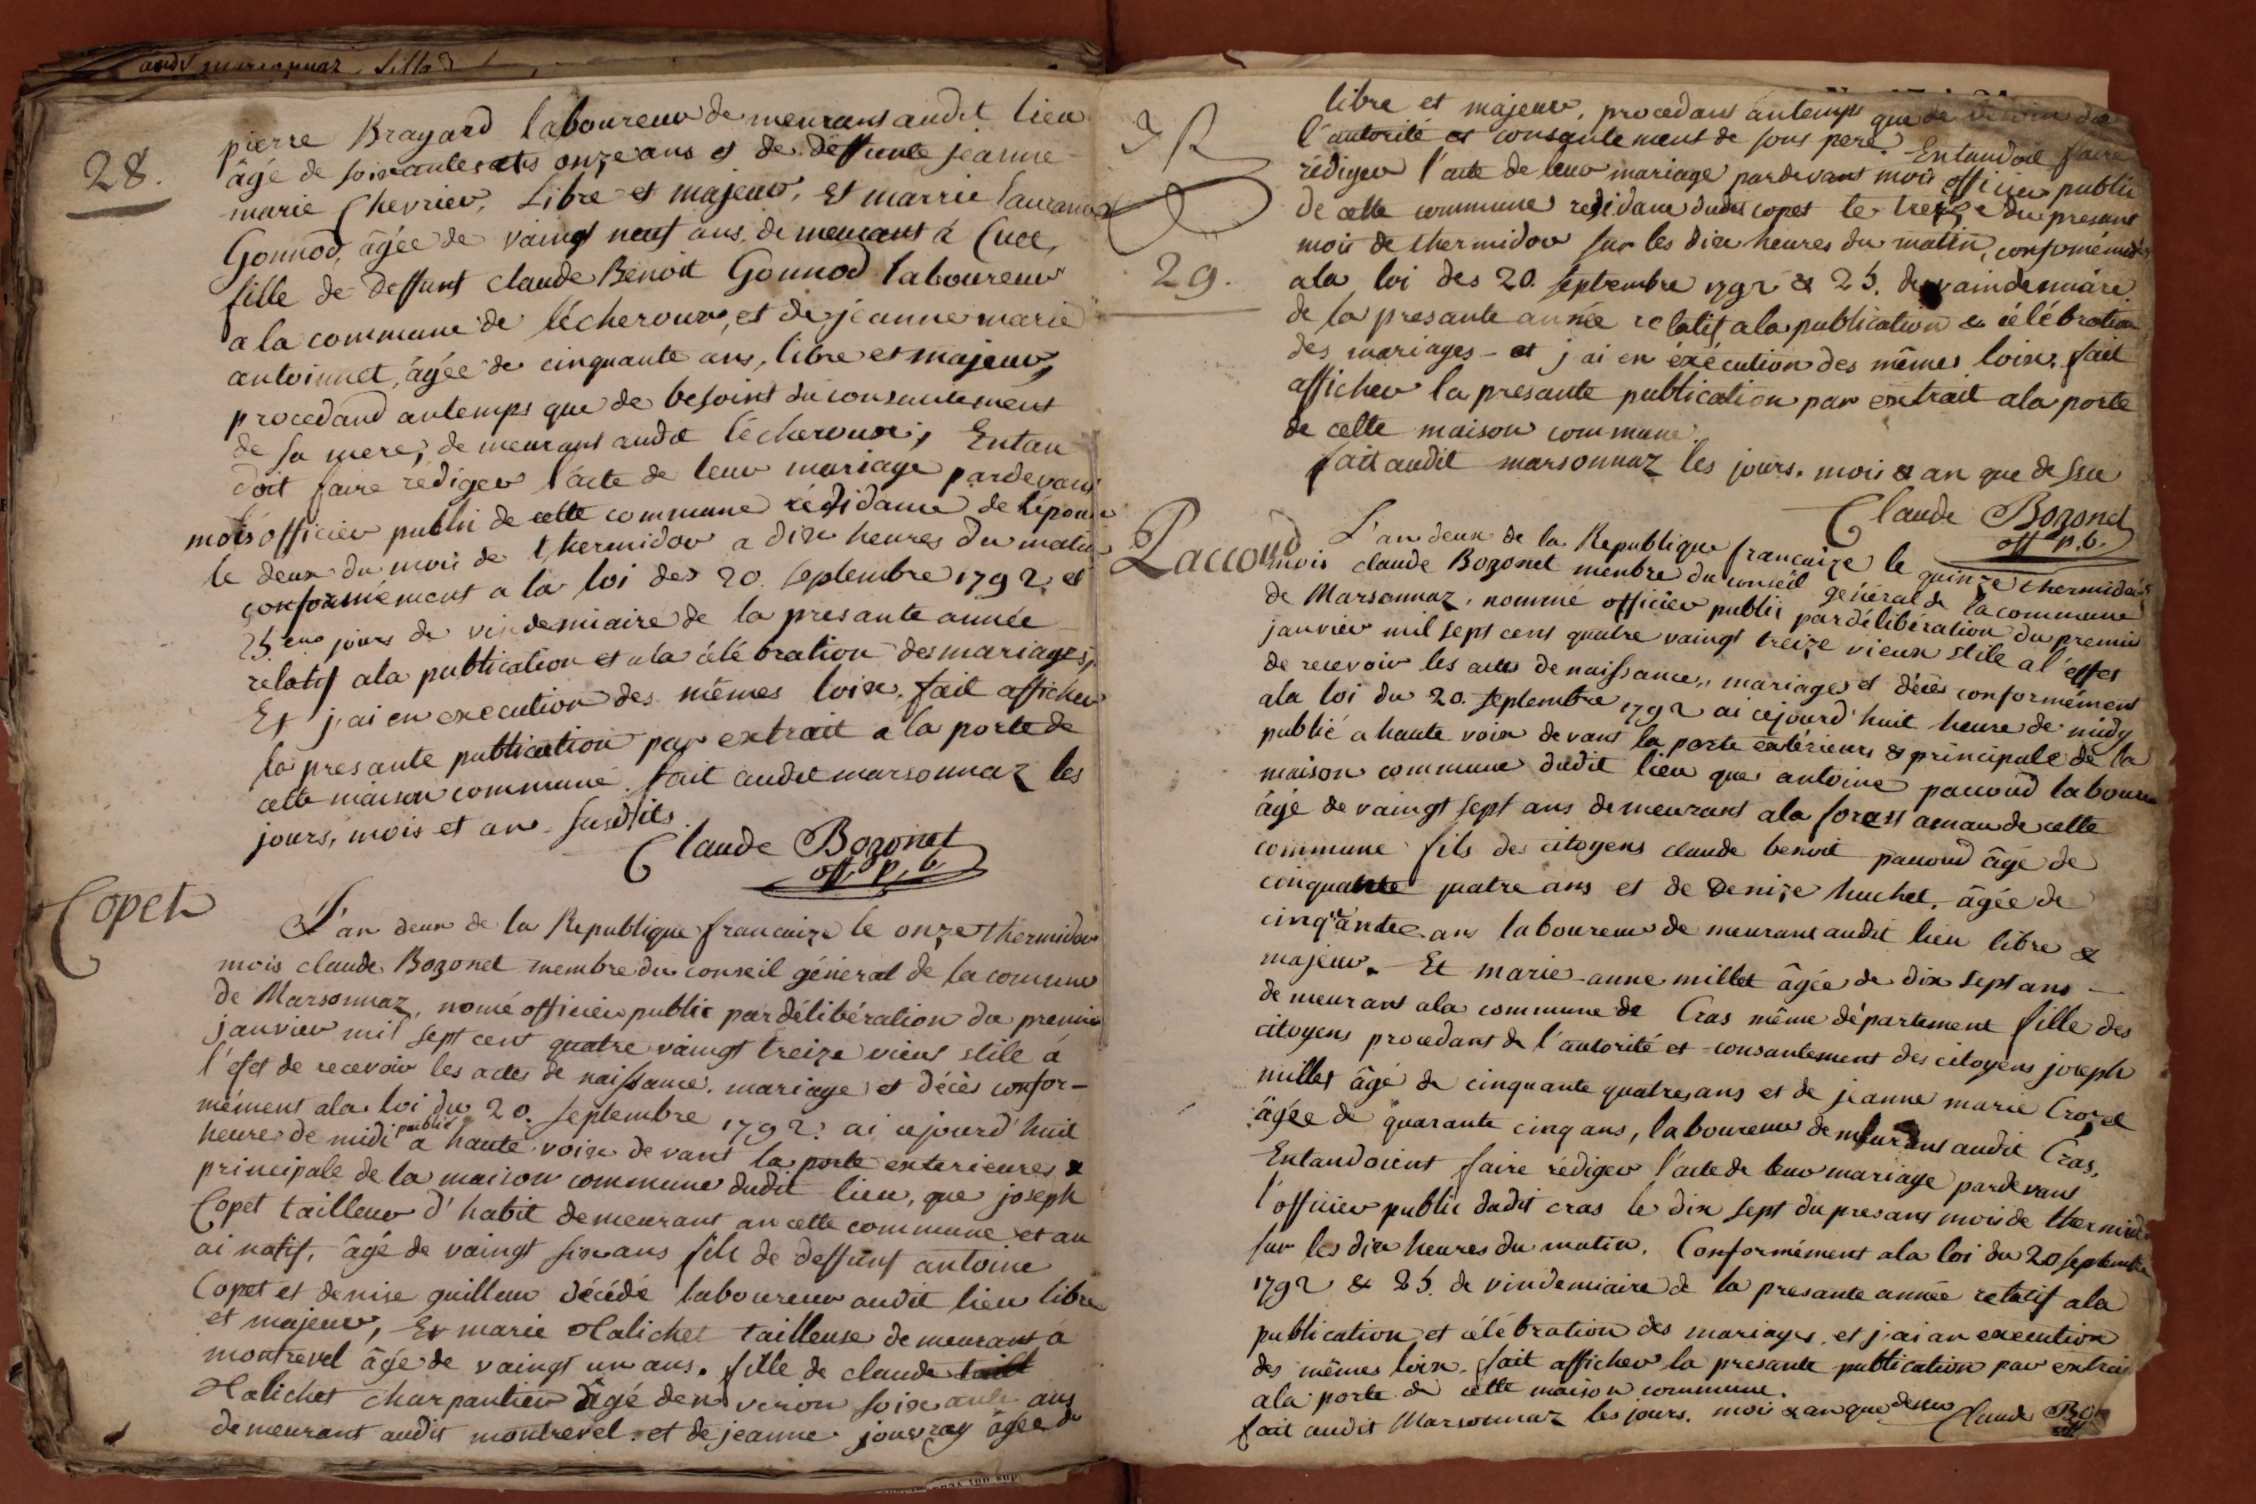 audit marsonnaz, fille d
28.
pierre Brayard laboureur demeurant audit lieu
âgé de soixante et onze ans et de deffunte jeanne
marie Chevrier, Libre et majeur, Et marrie
Gonnod, âgée de vaingt neuf ans, demeurant à Cuet,
fille de deffunt claude Benoit Gonnod laboureur
a la commune de lécheroux, et de jeanne marie
antoinnet, âgée de cinquante ans, libre et majeur,
procedand antemps que de besoint du consantement
de sa mere, demeurant audit lécheroux, Entan
doit faire rédiger l'acte de leur mariage pardevant
mois officier public de cette commune résidance de l'épouse
le deux du mois de thermidor a dix heures du matin
conformément a la loi des 20. septembre 1792. et
25.eme jours de vindemiaire de la presante année
relatif ala publication et ala célébration des mariages,
Et j'ai en execution des mêmes loix, fait afficher
la presante publication par extrait a la porte de
cette maison commune. fait audit marsonnaz les
jours, mois et an susdits.
Claude Bozonet
off. p. b.
Copet
L'an deux de la Republique francaize le onze thermidor
mois claude Bozonet membre du conseil général de la comune
de Marsonnaz, nomé officier public par délibération du premier
janvier mil sept cent quatre vaingt treize vieux stile à
l'efet de recevoir les actes de naissance, mariage et décès confor-
mément ala loi du 20. septembre 1792. ai cejourd'huit
heure de midi publié a haute voix devant la porte exterieures &
principale de la maison commune dudit lieu, que joseph
Copet tailleur d'habit demeurant an cette commune et an
ai natif, âgé de vaingt six ans fils de deffunt antoine
Copet et denise guilleux décédé laboureur audit lieu libre
et majeur, Et marie Halichet tailleuse demeurant à
montrevel âgée de vaingt un ans. fille de claude
Halichet charpantier âgé denviron soixante ans
demeurant audit montrevel. et de jeanne âgée de
libre et majeur, procedans antemps que de besoin de
l'autorité et consantement de sons pere. Entandoit faire
rédiger l'acte de leur mariage pardevant mois officier public
de cette commune résidance dudit copet le treize du presant
mois de thermidor sur les dix heures du matin, confomément
29.
ala loi des 20. septembre 1792 & 25. de vaindemiare
de la presante année relatif ala publication & célébration
des mariages - et j'ai en éxécution des mêmes loix, fait
afficher la presante publication par extrait ala porte
de cette maison commune.
fait audit marsonnaz les jours, mois & an que dessu
Claude Bozonet
off p. b.
Paccoud
L'an deux de la Republique francaize le quinze thermidor
mois claude Bozonet membre du conseil général de la commune
de Marsonnaz, nommé officier public par délibération du premier
janvier mil sept cent quatre vaingt treize vieux stile a l'effet
de recevoir les actes de naissance, mariages et décès conformément
ala loi du 20. septembre 1792 ai cejourd'huit heure de midy
publié a haute voix devant la porte extérieure & principale de la
maison commune dudit lieu que antoine paccoud laboureur
âgé de vaingt sept ans demeurant ala forest de cette
commune fils des citoyens claude benoit paccoud âgé de
cinquante quatre ans et de denize huchet, âgée de
cinq'ante ans laboureur demeurant audit lieu libre &
majeur. Et marie-anne millet âgée de dix sept ans -
demeurant ala commune de Cras même département fille des
citoyens procedant de l'autorité et consantement des citoyens joseph
millet âgé de cinquante quatre ans et de jeanne marie Crozet
âgée de quarante cinq ans, laboureur demeurant audit Cras,
Entandoient faire rédiger l'acte de leur mariage pardevant
l'officier public dudit cras le dix sept du presant mois de thermidor
sur les dix heures du matin. Conformément ala loi du 20 septembre
1792 & 25. de vindemiaire de la presante année relatif ala
publication et célébration des mariages, et j'ai an execution
des mêmes loix, fait afficher la presante publication par extrait
ala porte de cette maison commune.
fait audit Marsonnaz les jours, mois & an que dessus Claude Bo